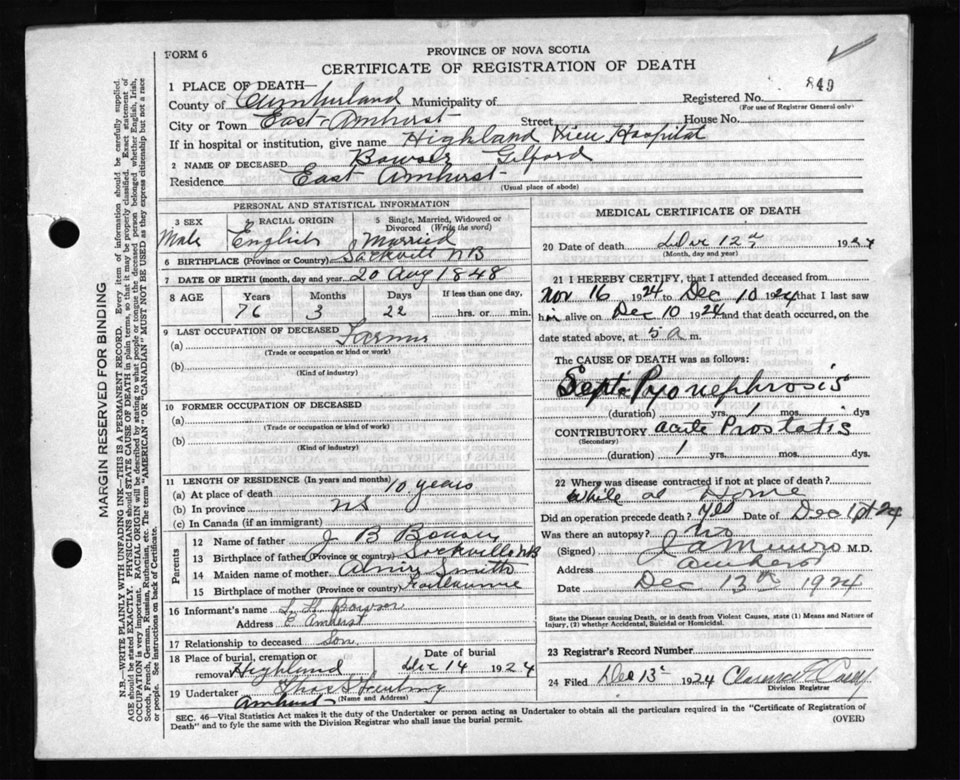 FORM 6
PROVINCE OF NOVA SCOTIA
CERTIFICATE OF REGISTRATION OF DEATH
849
1 PLACE OF DEATH—
Registered No.
(For use of Registrar General only)
County of Cumberland Municipality of
City or Town East Amherst Street House No.
If in hospital or institution, give name Highland View Hospital
2 NAME OF DECEASED Bowser Gilford
Residence East Amherst
(Usual place of abode)
PERSONAL AND STATISTICAL INFORMATION
3 SEX Male
4 RACIAL ORIGIN English
5 Single, Married, Widowed or Divorced (Write the word) Married
6 BIRTHPLACE (Province or Country) Sackvill NB
7 DATE OF BIRTH (month, day and year) 20 Aug 1848
8 AGE Years Months Days If less than one day,
76 3 22 hrs. or min.
9 LAST OCCUPATION OF DECEASED
(a) Farmer
(Trade or occupation or kind or work)
(b)
(Kind of industry)
10 FORMER OCCUPATION OF DECEASED
(a)
(Trade or occupation or kind or work)
(b)
(Kind of industry)
11 LENGTH OF RESIDENCE (In years and months)
(a) At place of death 10 years
(b) In province NS
(c) In Canada (if an immigrant)
Parents
12 Name of father J B Bowser
13 Birthplace of father (Province or country) Sackville NB
14 Maiden name of mother Smith
15 Birthplace of mother (Province or country)
16 Informant's name Bowser
Address E. Amherst
17 Relationship to deceased Son
18 Place of burial, cremation or removal Highland
Date of burial Dec 14 1924
19 Undertaker Thos
Amherst (Name and Address)
MEDICAL CERTIFICATE OF DEATH
20 Date of death Dec 12th 1924
(Month, day and year)
21 I HEREBY CERTIFY, that I attended deceased from
Nov 16 1924 to Dec 10 1924 that I last saw
him alive on Dec 10 1924 and that death occurred, on the
date stated above, at 5 a m.
The CAUSE OF DEATH was as follows:
Septic Pyonephrosis
(duration) yrs. 1 mos. dys
CONTRIBUTORY acute Prostatis
(Secondary)
(duration) 1 yrs. mos. dys
22 Where was disease contracted if not at place of death?
While at Home
Did an operation precede death? Yes Date of Dec 1st 24
Was there an autopsy? No
(Signed) J A Munro M.D.
Address Amherst
Date Dec 13th 1924
State the Disease causing Death, or in death from Violent Causes, state (1) Means and Nature of
Injury, (2) whether Accidental, Suicidal or Homicidal.
23 Registrar's Record Number
24 Filed Dec 13th 1924 Clarence E Casey
Division Registrar
SEC. 46—Vital Statistics Act makes it the duty of the Undertaker or person acting as Undertaker to obtain all the particulars required in the "Certificate of Registration of
Death" and to fyle the same with the Division Registrar who shall issue the burial permit.
(OVER)
MARGIN RESERVED FOR BINDING
N.B.—WRITE PLAINLY WITH UNFADING INK—THIS IS A PERMANENT RECORD. Every item of information should be carefully supplied.
AGE should be stated EXACTLY. PHYSICIANS should STATE CAUSE OF DEATH in plain terms, so that it may be properly classified. Exact statement of
OCCUPATION is very important. RACIAL ORIGIN will be described by stating to what people or tongue the deceased person belonged whether English, Irish,
Scotch, French, German, Russian, Ruthenian, etc. The terms "AMERICAN" or "CANADIAN" MUST NOT BE USED as they express citizenship but not a race
or people. See instructions on back of Certificate.